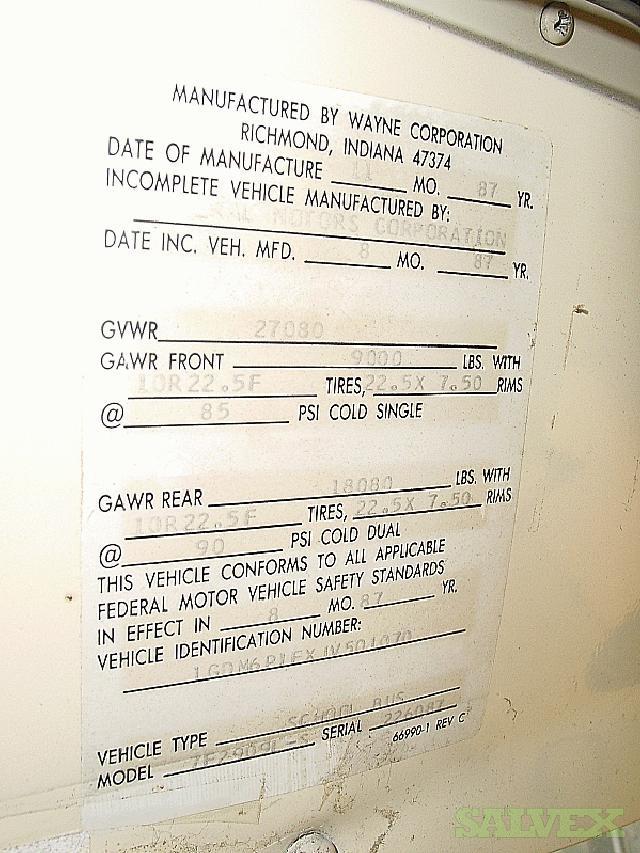 MANUFACTURED BY WAYNE CORPORATION
RICHMOND, INDIANA 47374
DATE OF MANUFACTURE 11 MO. 87 YR.
INCOMPLETE VEHICLE MANUFACTURED BY:
MOTORS CORPORATION
DATE INC. VEH. MFD. 8 MO. 87 YR.
GVWR 27080
GAWR FRONT 9000 LBS. WITH
10R22.5F TIRES, 22.5X 7.50 RIMS
@ 85 PSI COLD SINGLE
GAWR REAR 18080 LBS. WITH
10R22.5F TIRES, 22.5X 7.50 RIMS
@ 90 PSI COLD DUAL
THIS VEHICLE CONFORMS TO ALL APPLICABLE
FEDERAL MOTOR VEHICLE SAFETY STANDARDS
IN EFFECT IN 8 MO. 87 YR.
VEHICLE IDENTIFICATION NUMBER:
VEHICLE TYPE SCHOOL BUS
MODEL SERIAL 226087
66990-1 REV C
SALVEX